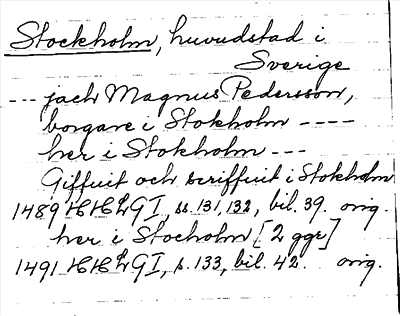 Stockholm, huvudstad i
Sverige
--- jach Magnus Pedersson,
borgare i Stokholm ----
her i Stokholm ---
Giffuit och scriffuit i Stokholm
1489 HH I, ss. 131, 132, bil. 39. orig.
her i Stocholm [2 ggr]
1491 HH I, s. 133, bil. 42. orig.